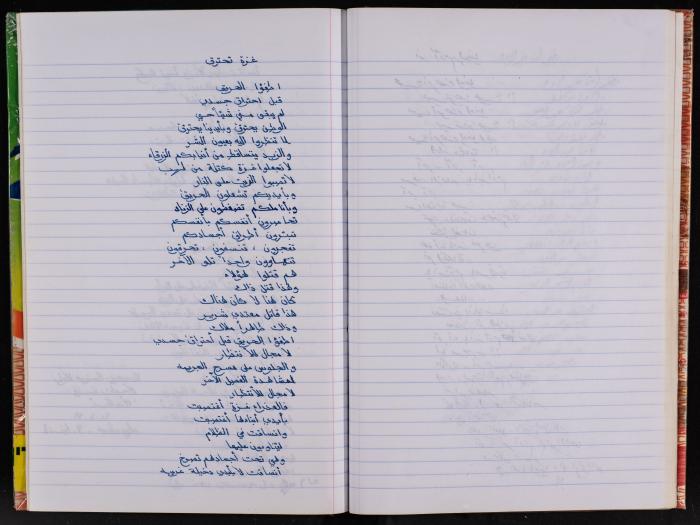 غزة تحترق
اطفؤا الحريق
قبل احتراق جسدي
لم يبقى مني شيئاً حي
الوطن يحترق وبأيدينا يحترق
لا تنظروا إليه بعيون الشر
والزبد يتساقط من أنيابكم الزرقاء
لا تجعلوا غزة كتلة من لهب
لا تصبوا الزيت على النار
وبأيديكم تشعلون الحريق
وبأناملكم تضغطون على الزناد
تحاصرون أنفسكم بأنفسكم
تبترون أطراف أجسادكم
تفجرون ، تنسفون ، تحرقون
تتهاوون واحداً تلو الآخر
هم قتلوا هؤلاء
وهذا قتل ذاك
كان هنا لا كان هناك
هذا قاتل معتدي شرير
وذاك طاهراً ملاك
اطفؤا الحريق قبل احتراق جسدي
لا مجال للانتظار
والجلوس على مسرح الجريمة
لمشاهدة الفصل الآخر
لا مجال للأنتظار
فالعذراء غزة أغتصبت
بأيدي أبناءها أغتصبت
وانساقت في الظلام
ليتاوبون عليها
وهي تحت أجسادهم تصرخ
أنساقت لأيدي دخيلة غريبة